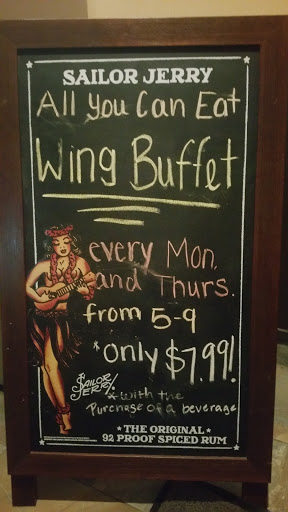 SAILOR JERRY
All You Can Eat
Wing Buffet
every Mon.
and Thurs.
from 5-9
*only $7.99!
SAILOR
JERRY!
* with the
Purchase of a beverage
* THE ORIGINAL *
92 PROOF SPICED RUM